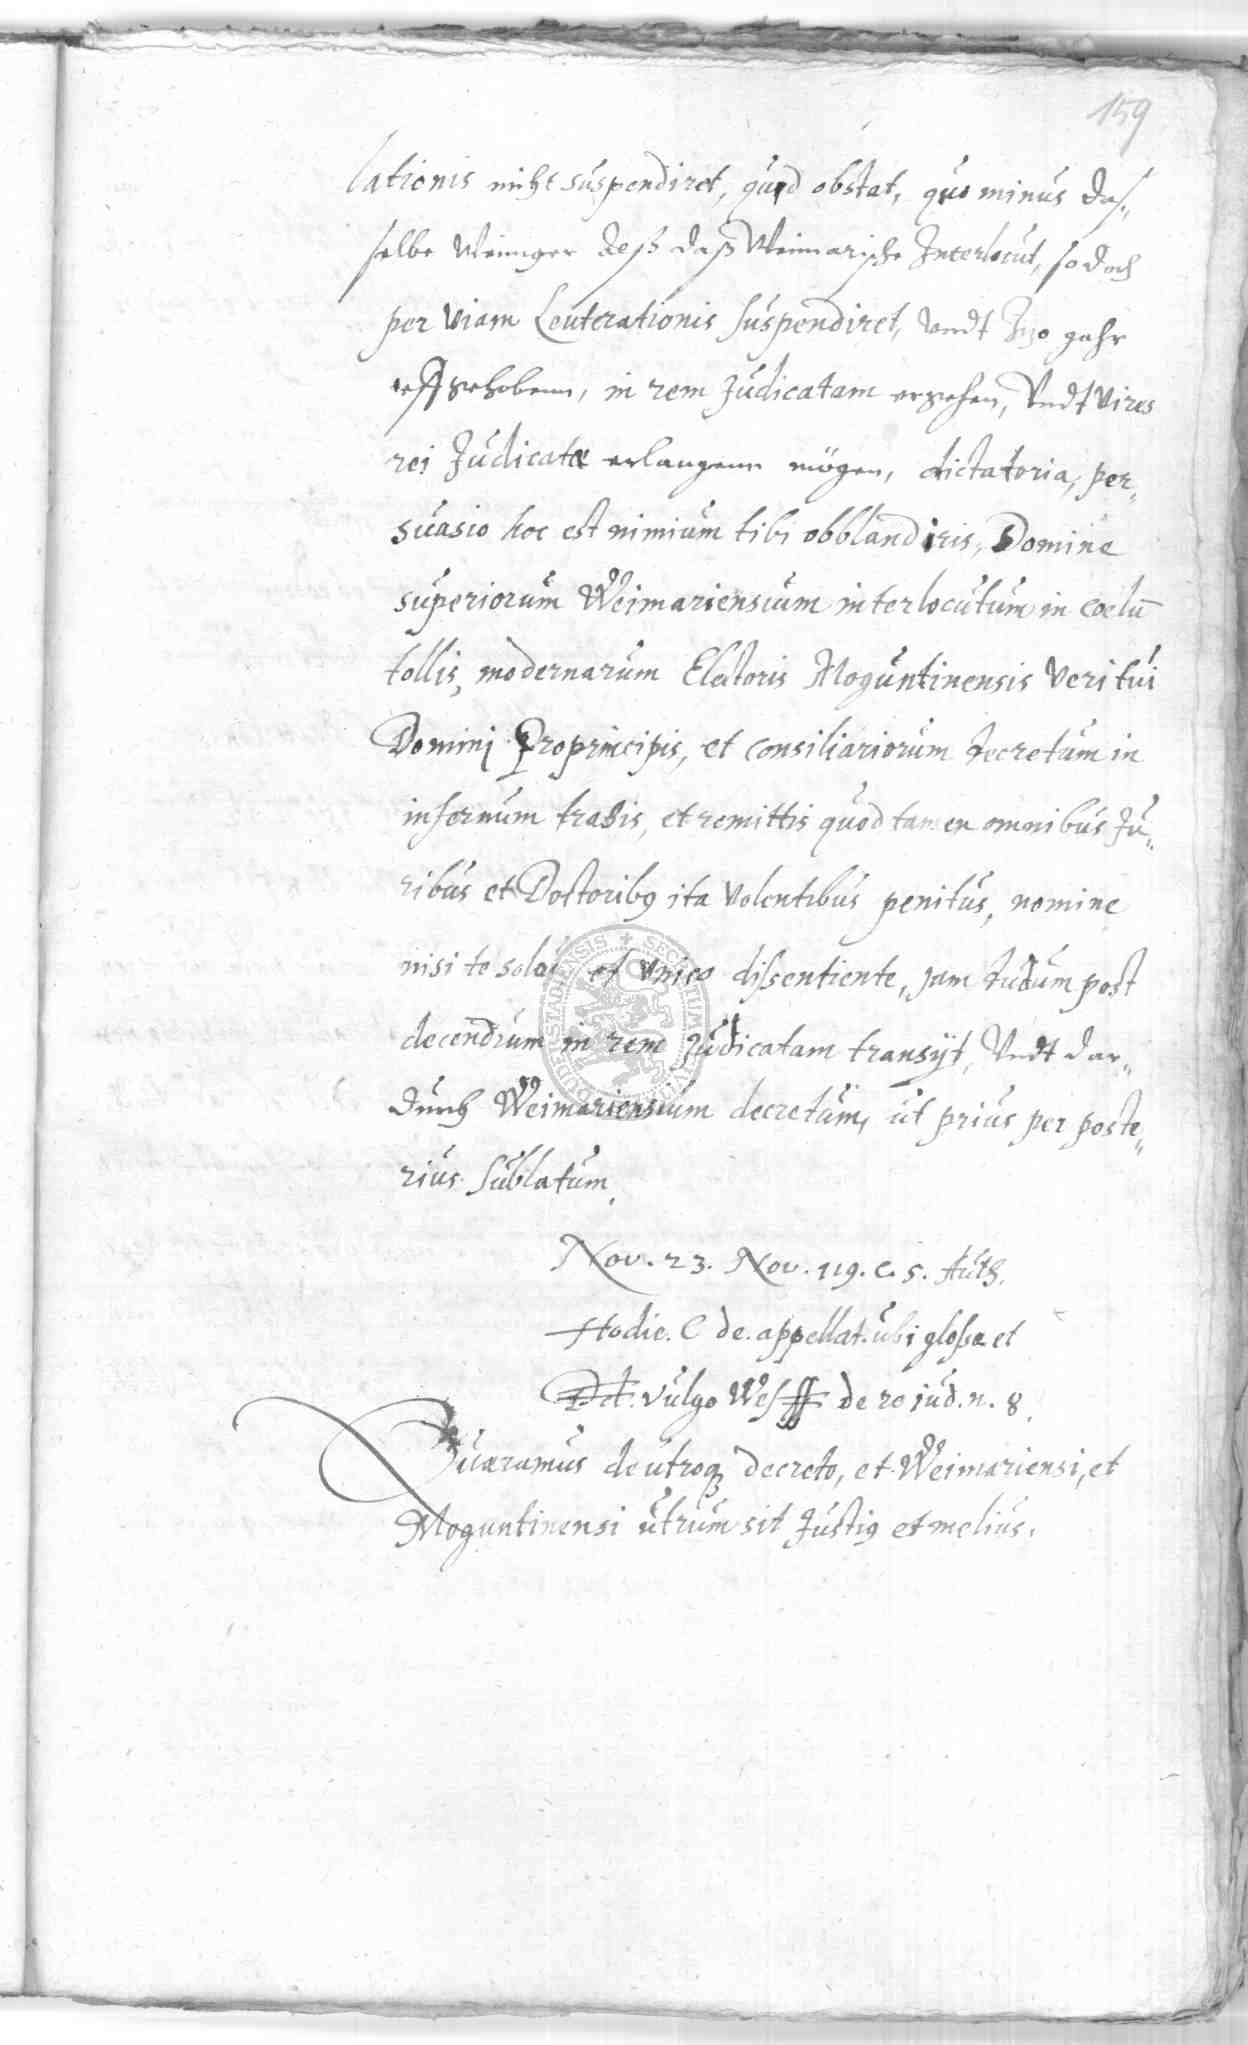 159
lationis nicht suspendiret, quid obstat, quo minus das„
selbe weiniger deß daß Weimarische Interlocut, so doch
per viam Leuterationis suspendiret, undt Izo gahr
uffgehobenn, in rem Judicatam ergehen, Undt vires
rei Judicatæ erlangenn mögen, dictatoria, per„
suasio hoc est nimium tibi obblandiris, Domine
superiorum Weimariensium interlocutum in coelū
tollis, modernarum Electoris Moguntinensis veri tui
Domini Proprincipis, et consiliariorum decretum in
infernum trahis, et remittis quod tamen omnibus Ju„
ribus et Doctoribꝰ ita volentibus penitus, nemine
nisi te solo et unico dissentiente, jam dudum post
decendium in rem judicatam transijt, Undt dar„
durch Weimariensium decretum, ut prius per poste„
rius sublatum.
Nov. 23. Nov. 119. c. 5. Auth.
Hodie. C de. appellat. ubi glossa et
Dd. vulgo Wes ff de re iud. n. 8.
Quæramus de utroqꝫ decreto, et Weimariensi, et
Moguntinensi utrum sit Justiꝰ et melius.